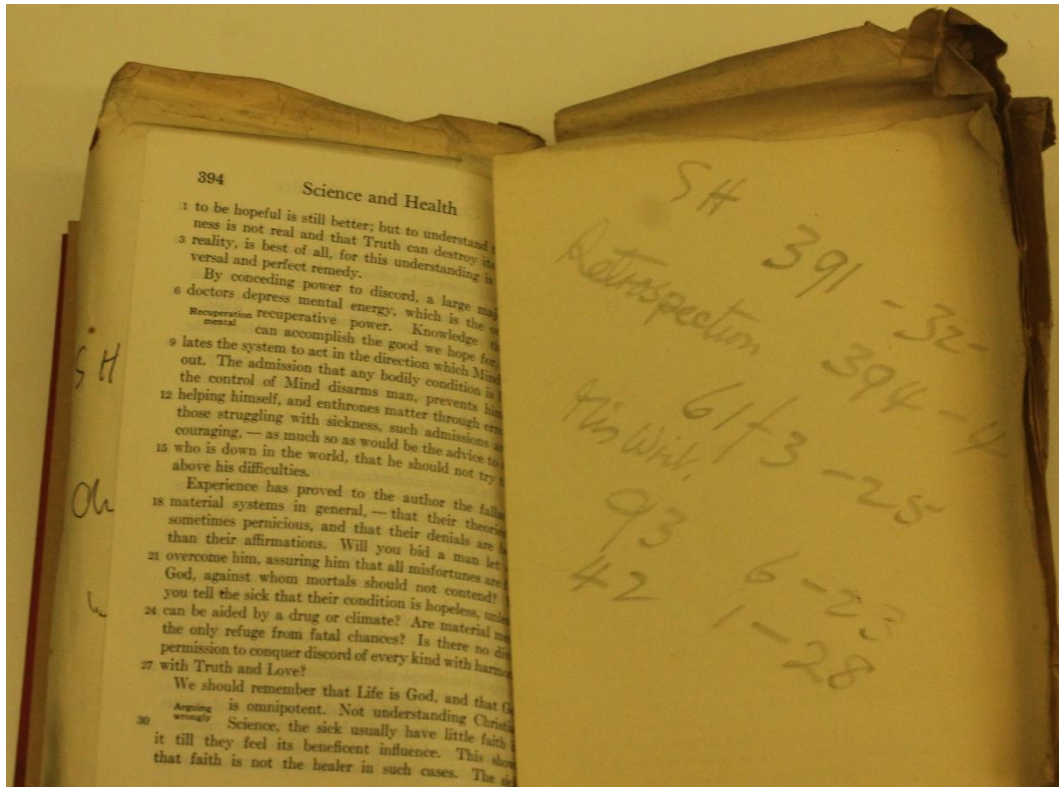 394 Science and Health
1 to be hopeful is still better; but to understand
ness is not real and that Truth can destroy its
3 reality, is best of all, for this understanding is
versal and perfect remedy.
By conceding power to discord, a large maj
6 doctors depress mental energy, which is the
Recuperation mental
recuperative power. Knowledge
can accomplish the good we hope for,
9 lates the system to act in the direction which Mind
out. The admission that any bodily condition is
the control of Mind disarms man, prevents him
12 helping himself, and enthrones matter through
those struggling with sickness, such admissions
couraging, — as much so as would be the advice to
15 who is down in the world, that he should not try
above his difficulties.
Experience has proved to the author the
18 material systems in general, — that their theories
sometimes pernicious, and that their denials are
than their affirmations. Will you bid a man let
21 overcome him, assuring him that all misfortunes are
God, against whom mortals should not contend?
you tell the sick that their condition is hopeless,
24 can be aided by a drug or climate? Are material
the only refuge from fatal chances? Is there no
permission to conquer discord of every kind with
27 with Truth and Love?
We should remember that Life is God, and that
Arguing wrongly
is omnipotent. Not understanding
30 Science, the sick usually have little faith
it till they feel its beneficent influence. This
that faith is not the healer in such cases. The
SH
SH
391 - 32-
394 - 4
Retrospection
61 - 3 - 25
Mis Writ.
93 6-23
42 1-28